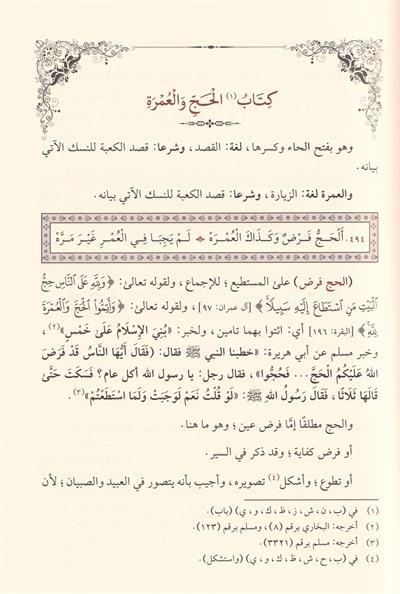 كِتَابُ (١) الْحَجِّ وَالْعُمْرَةِ
وهو بفتح الحاء وكسرها، لغة: القصد، وشرعا: قصد الكعبة للنسك الآتي
بيانه.
والعمرة لغة: الزيارة، وشرعا: قصد الكعبة للنسك الآتي بيانه.
٤٩٤. أَلْحَجُّ فَرْضٌ وَكَذَاكَ الْعُمْرَهْ لَمْ يَجِبَا فِي الْعُمْرِ غَيْرَ مَرَّهْ
(الحج فرض) على المستطيع؛ للإجماع، ولقوله تعالىٰ: ﴿وَلِلَّهِ عَلَى النَّاسِ حِجُّ
الْبَيْتِ مَنِ اسْتَطَاعَ إِلَيْهِ سَبِيلًا﴾ [آل عمران: ٩٧]، ولقوله تعالىٰ: ﴿وَأَتِمُّوا الْحَجَّ وَالْعُمْرَةَ
لِلَّهِ﴾ [البقرة: ١٩٦] أي: ائتوا بهما تامين، ولخبر: «بُنِيَ الْإِسْلَامُ عَلَىٰ خَمْسٍ»(٢)،
وخبر مسلم عن أبي هريرة: «خطبنا النبي ﷺ فقال: (فَقَالَ أَيُّهَا النَّاسُ قَدْ فَرَضَ
اللهُ عَلَيْكُمُ الْحَجَّ... فَحُجُّوا»، فقال رجل: يا رسول الله أكل عام؟ فَسَكَتَ حَتَّىٰ
قَالَهَا ثَلَاثًا، فَقَالَ رَسُولُ اللهِ ﷺ: «لَوْ قُلْتُ نَعَمْ لَوَجَبَتْ وَلَمَا اسْتَطَعْتُمْ»(٣).
والحج مطلقًا إمَّا فرض عين؛ وهو ما هنا.
أو فرض كفاية؛ وقد ذكر في السير.
أو تطوع؛ وأشكل(٤) تصويره، وأجيب بأنه يتصور في العبيد والصبيان؛ لأن
(١) في (ب، ن، ش، ز، ظ، ك، و، ي) (باب).
(٢) أخرجه: البخاري برقم (٨)، ومسلم برقم (١٢٣).
(٣) أخرجه: مسلم برقم (٣٣٢١).
(٤) في (ب، ح، ش، ظ، ك، و، ي) (واستشكل).